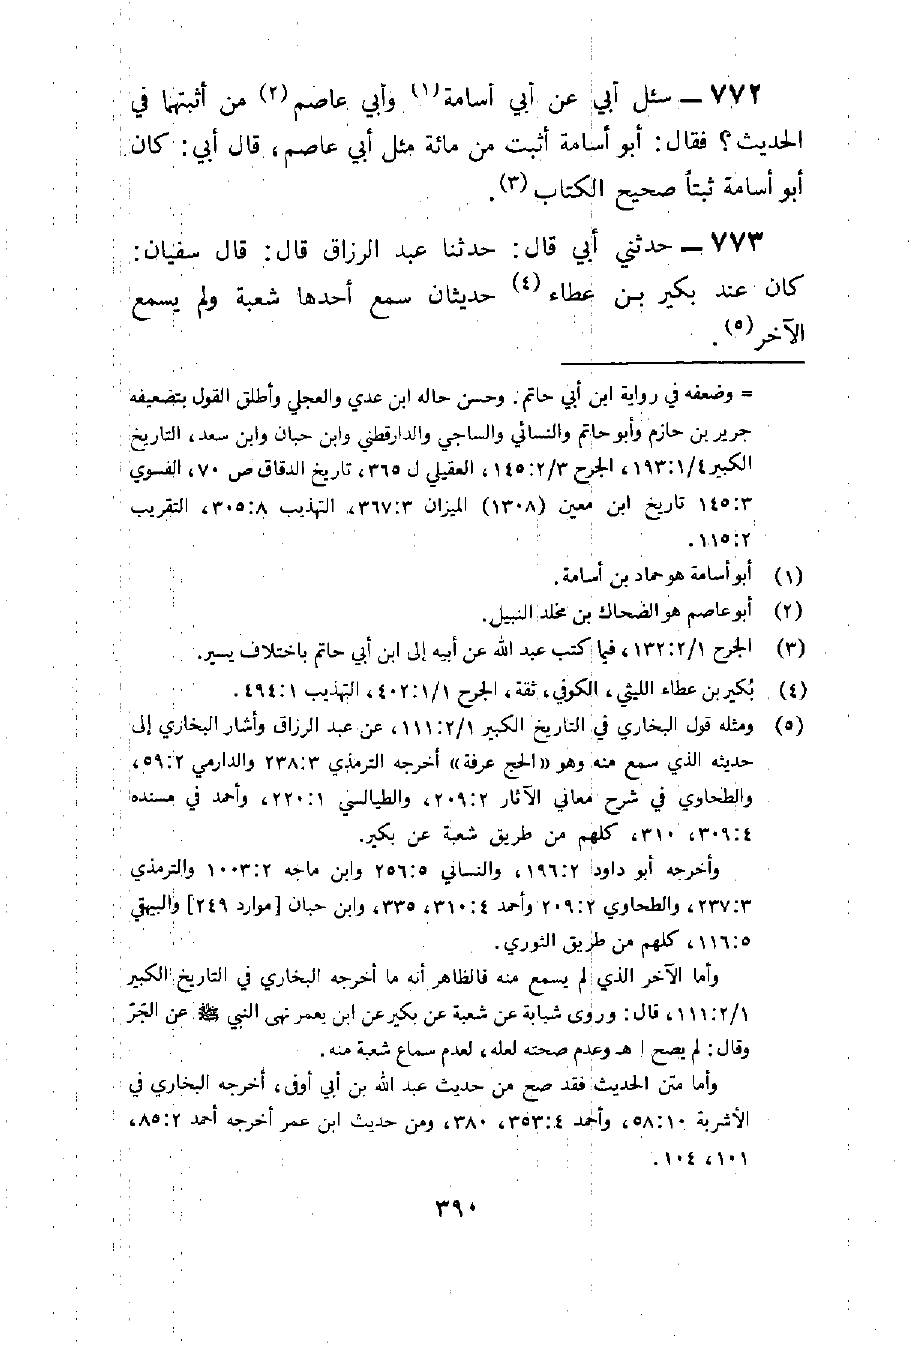 ٧٧٢ ــ سئل أبي عن أبي أسامة (١) وأبي عاصم (٢) من أثبتهما في
الحديث؟ فقال: أبو أسامة أثبت من مائة مثل أبي عاصم، قال أبي: كان
أبو أسامة ثبتاً صحيح الكتاب (٣).
٧٧٣ ــ حدثني أبي قال: حدثنا عبد الرزاق قال: قال سفيان:
كان عند بكير بن عطاء (٤) حديثان سمع أحدها شعبة ولم يسمع
الآخر (٥).
= وضعفه في رواية ابن أبي حاتم. وحسن حاله ابن عدي والعجلي وأطلق القول بتضعيفه
جرير بن حازم وأبو حاتم والنسائي والساجي والدارقطني وابن حبان وابن سعد، التاريخ
الكبير ١٩٣:١/٤، الجرح ١٤٥:٢/٣، العقيلي ل ٣٦٥، تاريخ الدقاق ص ٧٠، الفسوي
١٤٥:٣ تاريخ ابن معين (١٣٠٨) الميزان ٣٦٧:٣، التهذيب ٣٠٥:٨، التقريب
١١٥:٢.
(١) أبو أسامة هو حماد بن أسامة.
(٢) أبو عاصم هو الضحاك بن مخلد النبيل.
(٣) الجرح ١٣٢:٢/١، فيما كتب عبد الله عن أبيه إلى ابن أبي حاتم باختلاف يسير.
(٤) بُكير بن عطاء الليثي، الكوفي، ثقة، الجرح ٤٠٢:١/١، التهذيب ٤٩٤:١.
(٥) ومثله قول البخاري في التاريخ الكبير ١١١:٢/١، عن عبد الرزاق وأشار البخاري إلى
حديثه الذي سمع منه وهو «الحج عرفة» أخرجه الترمذي ٢٣٨:٣ والدارمي ٥٩:٢،
والطحاوي في شرح معاني الآثار ٢٠٩:٢، والطيالسي ٢٢٠:١، وأحمد في مسنده
٣٠٩:٤، ٣١٠، كلهم من طريق شعبة عن بكير.
وأخرجه أبو داود ١٩٦:٢، والنسائي ٢٥٦:٥ وابن ماجه ١٠٠٣:٢ والترمذي
٢٣٧:٣، والطحاوي ٢٠٩:٢ وأحمد ٣١٠:٤، ٣٣٥، وابن حبان [موارد ٢٤٩] والبيهقي
١١٦:٥، كلهم من طريق الثوري.
وأما الآخر الذي لم يسمع منه فالظاهر أنه ما أخرجه البخاري في التاريخ الكبير
١١١:٢/١، قال: وروى شبابة عن شعبة عن بكير عن ابن يعمر نهى النبي ﷺ عن الجَرّ
وقال: لم يصح ا هـ وعدم صحته لعله، لعدم سماع شعبة منه.
وأما متن الحديث فقد صح من حديث عبد الله بن أبي أوفى، أخرجه البخاري في
الأشربة ٥٨:١٠، وأحمد ٣٥٣:٤، ٣٨٠، ومن حديث ابن عمر أخرجه أحمد ٨٥:٢،
١٠١، ١٠٤.
٣٩٠